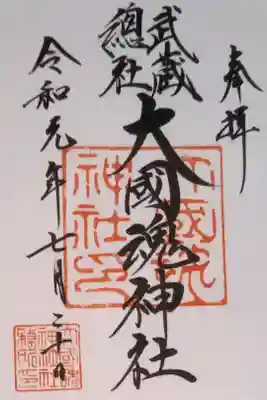 奉拝
武蔵
總社
大國魂神社
令和元年七月二十日
大國魂
神社印